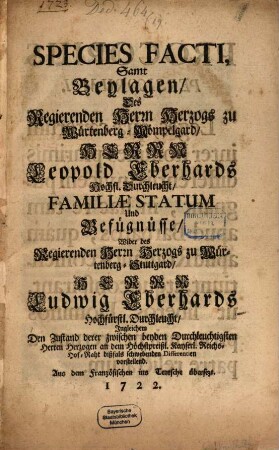 SPECIES FACTI,
Samt
Beylagen/
Des
Regierenden Herrn Herzogs zu
Würtenberg-Mömpelgard/
HERRN
Leopold Eberhards
Hochfl. Durchleucht/
FAMILIÆ STATUM
Und
Befügnüsse/
Wider des
Regierenden Herrn Herzogs zu Wür-
tenberg-Stuttgard/
HERRN
Ludwig Eberhards
Hochfürstl. Durchleucht/
Ingleichem
Den Zustand derer zwischen beyden Durchleuchtigsten
Herren Herzogen an dem Höchstpreißl. Kayserl. Reichs-
Hof-Raht dißfals schwebenden Differentien
vorstellend.
Aus dem Französischen ins Teutsche übersetzt.
1722.
Bayerische
Staatsbibliothek
München